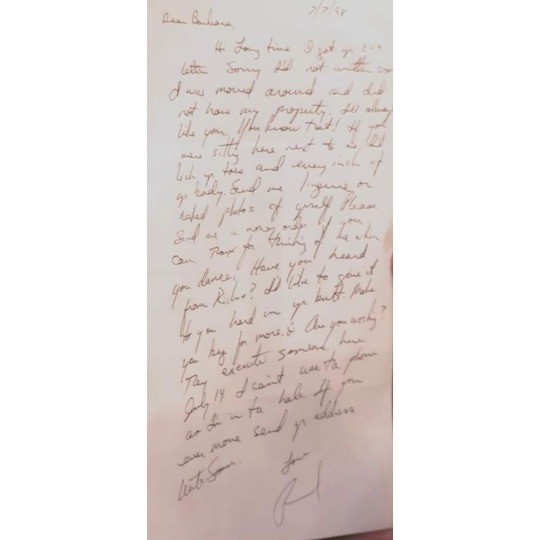 Dear Barbara,
7/7/98
Hi Long time I got yr 2
letter. Sorry I'd not written
I was moved around and did
not have my property. I'd always
like you. You know that! If you
were sitting here next to me I'd
lick yr toes and every inch of
yr body. Send me lingerie or
naked photos of yrself Please
Send me a money order if you
can. for thinking of me when
you dance. Have you heard
from I'd like to give it
to you hard in yr butt. Make
you beg for more. Are you working?
They execute someone here
July 14 I can't use ta phone
as I'm in ta hole. If you
ever move send yr address
Write Soon.
Love